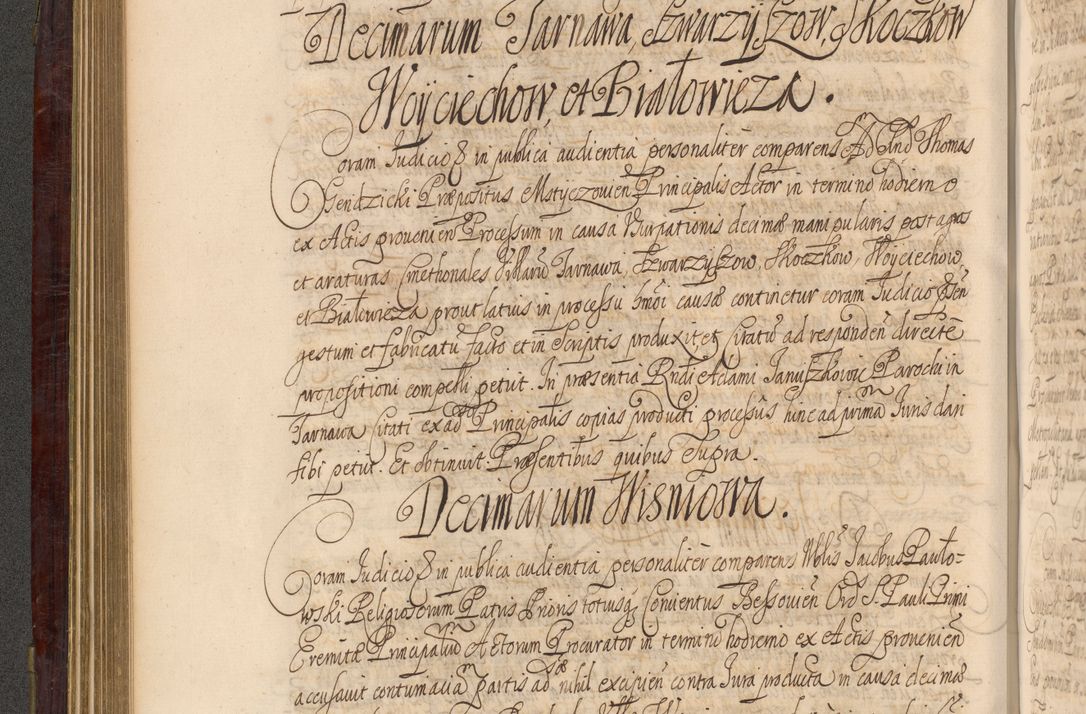 Decimarum Tarnawa, Szwarzyszow, Skoczkow
Woyciechow, et Białowieza.
Coram Judicio & in publica audientia personaliter comparens Thomas
Gendzicki Præpositus Mstyczowien Principalis Actor in termino hodierno
ex Actis provenien Processum in causa Usurpationis decimæ manipularis post agros
et araturas Cmethonales Villarū Tarnawa, Szwarzyszow, Skoczkow, Woyciechow
et Białowieza prout latius in processu hmōi causæ continetur coram Judicio
gestum et fabricatū facto et in Scriptis produxit, et Citatū ad responden directe
propositioni compelli petiit. In præsentia Rndi Adami Januszkowic Parochi in
Tarnawa Citati ex ad Principalis copias producti processūs hinc ad primā Juris dari
sibi petiit. Et obtinuit. Præsentibus quibus Supra.
Decimarum Wisniowa.
Coram Judicio & in publica audientia personaliter comparens Nblis Jacobus Pawło=
wski Religiosorum Patris Prioris totiusq Conventus Bessovien Ord S. Pauli Primi
Eremitæ Principaliū Actorum Procurator in termino hodierno ex Actis provenien
accusavit contumaciam partis adsæ nihil excipien contra Jura producta in causa decimæ